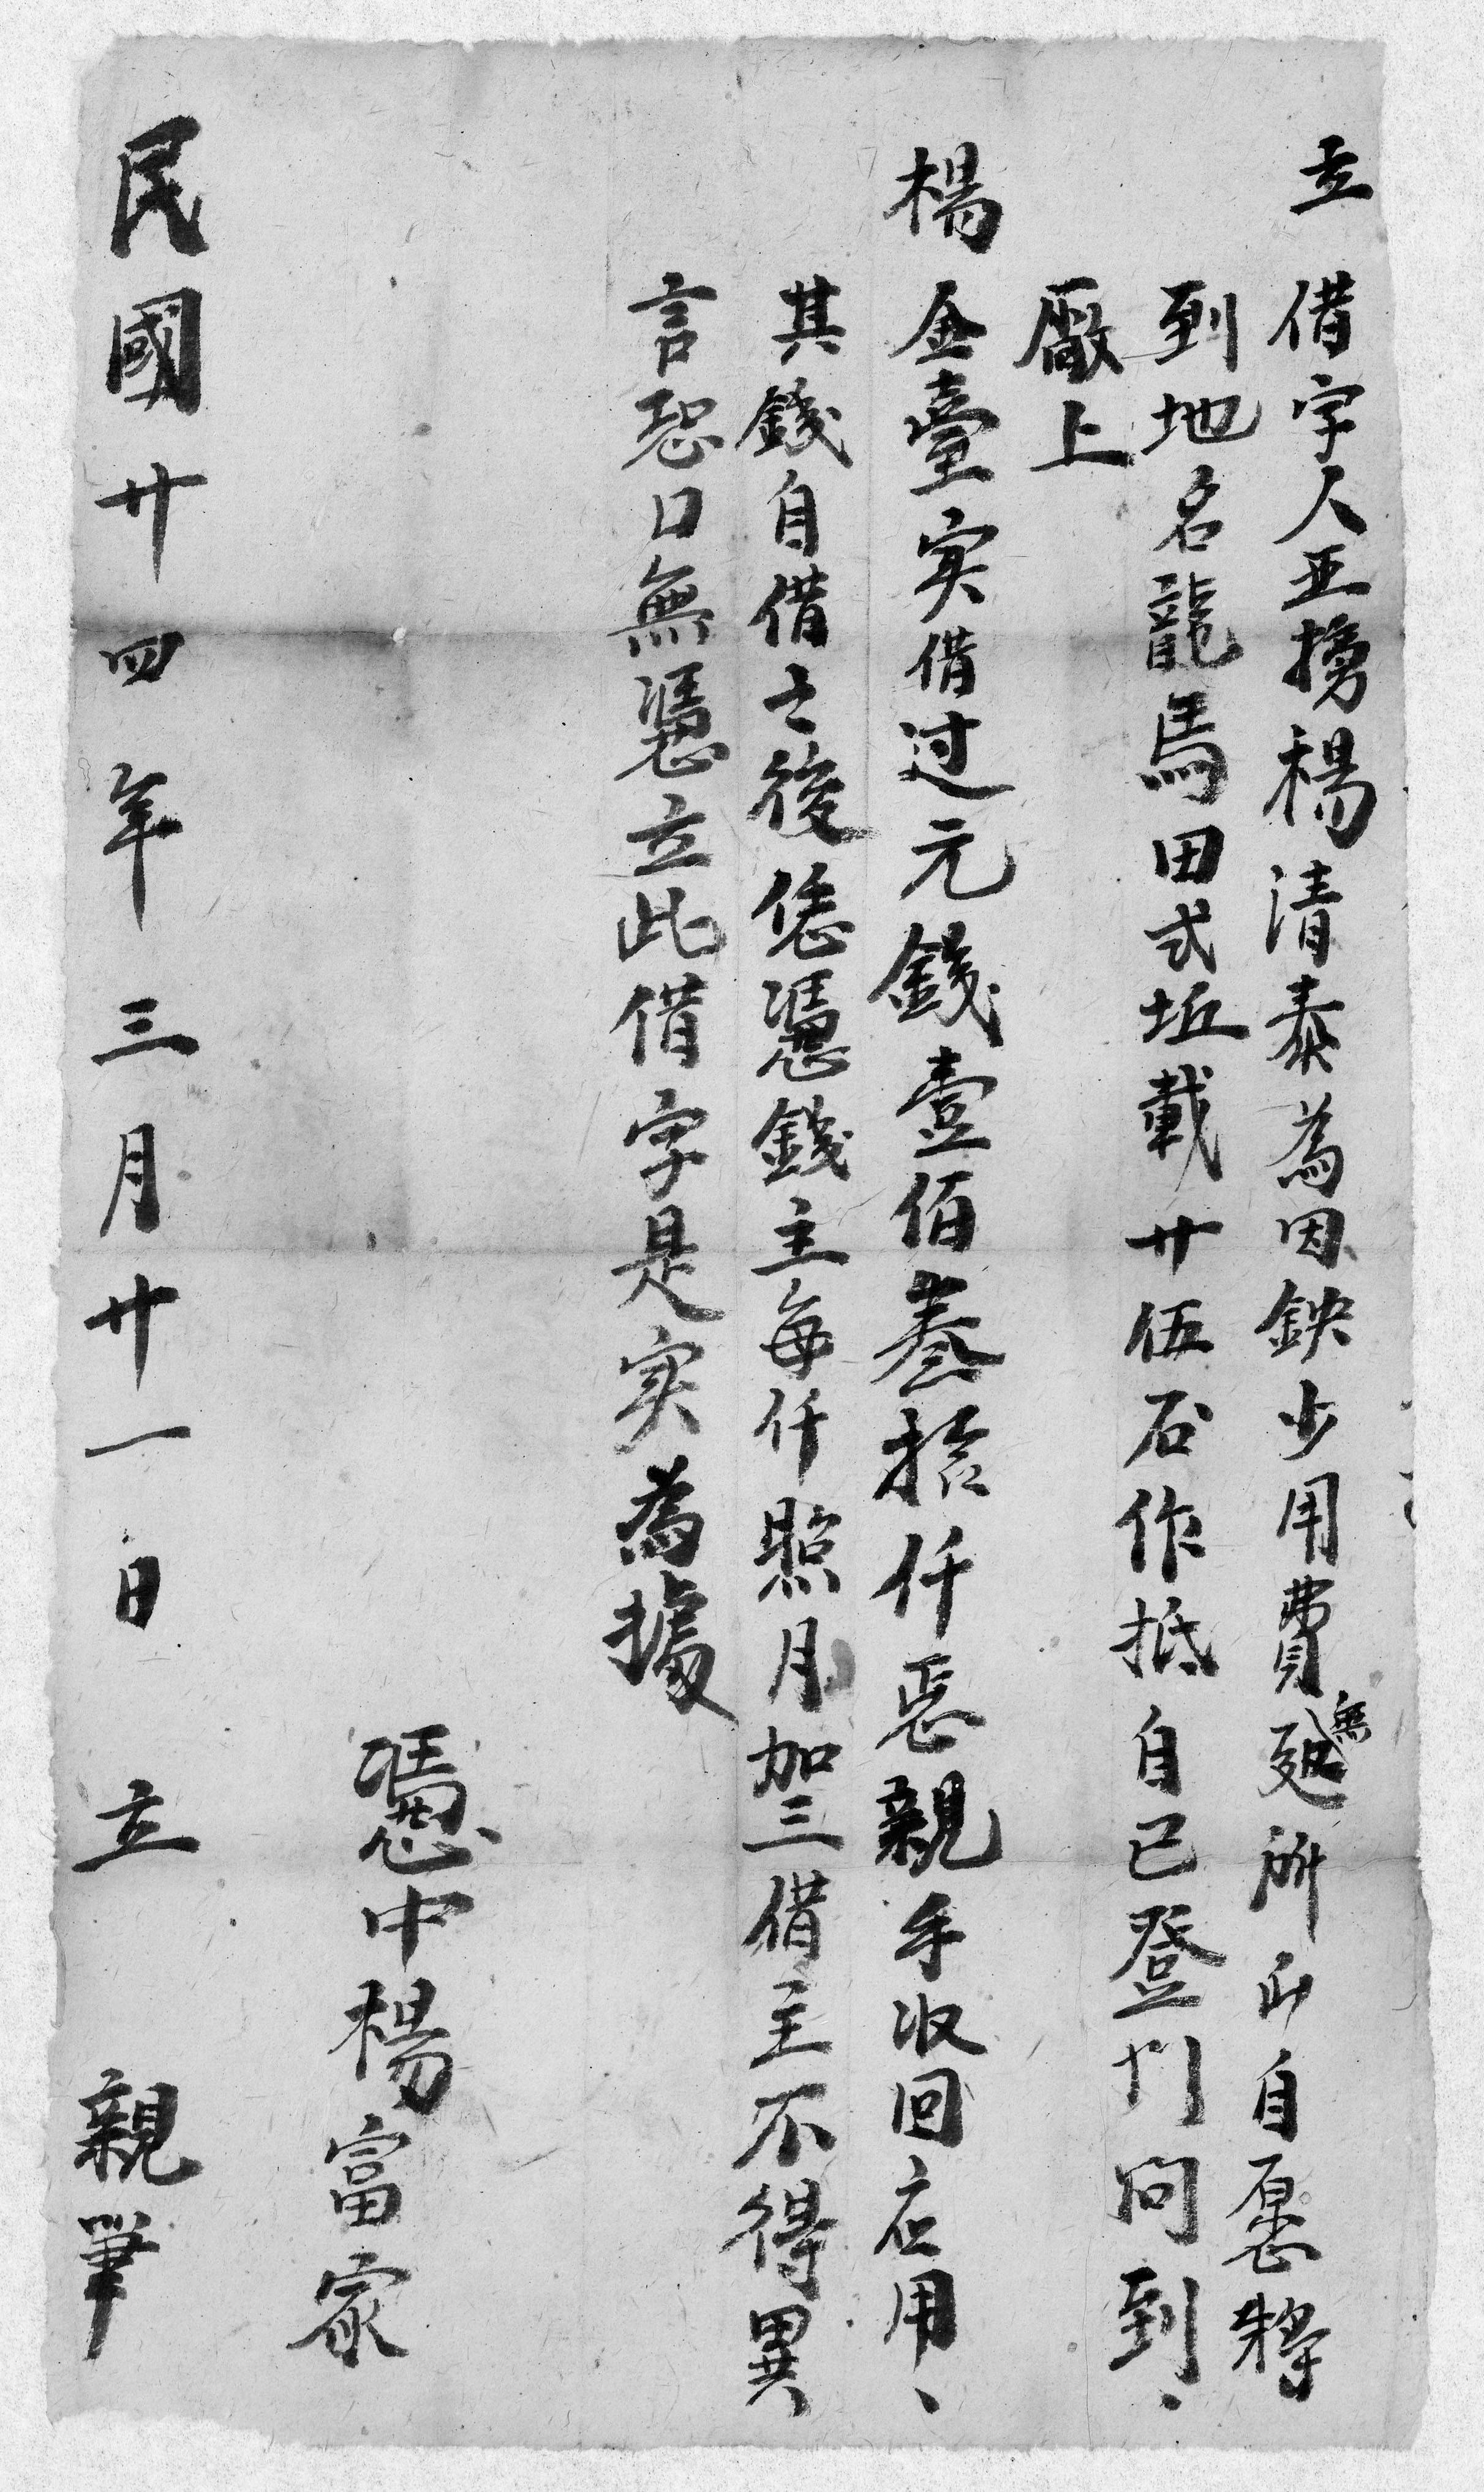 立借字人亚撈楊清泰為因缺少用費無処所出自愿將
到地名龍馬田弍坵載廿伍石作抵自己登門問到、
廠上
楊金臺实借过元錢壹佰叁拾仟忢親手收回应用、
其錢自借之後恁憑錢主每仟照月加三借主不得異
言恐口無憑立此借字是实為據
憑中楊富家
民國廿四年三月廿一日 立 親筆